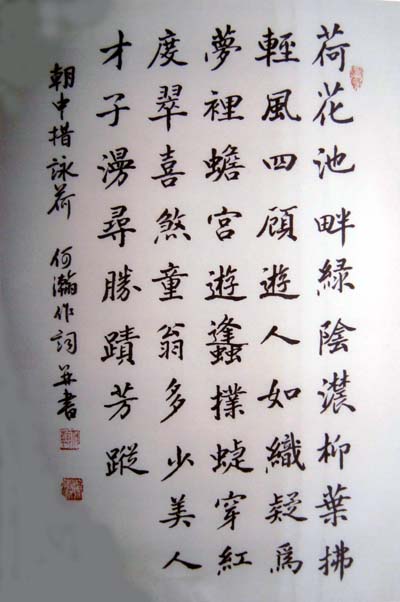 荷花池畔綠陰濃柳葉拂
輕風四顧遊人如織疑爲
夢裡蟾宮遊蠭撲蜨穿紅
度翠喜煞童翁多少美人
才子漫尋勝蹟芳蹤
朝中措詠荷 何瀚作詞并書